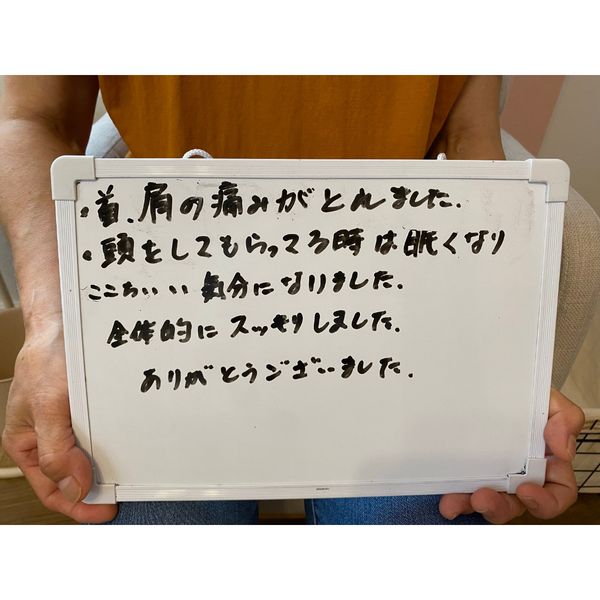 ・首、肩の痛みがとれました.
・頭をしてもらってる時は眠くなり
こころいい気分になりました.
全体的にスッキリしました.
ありがとうございました.